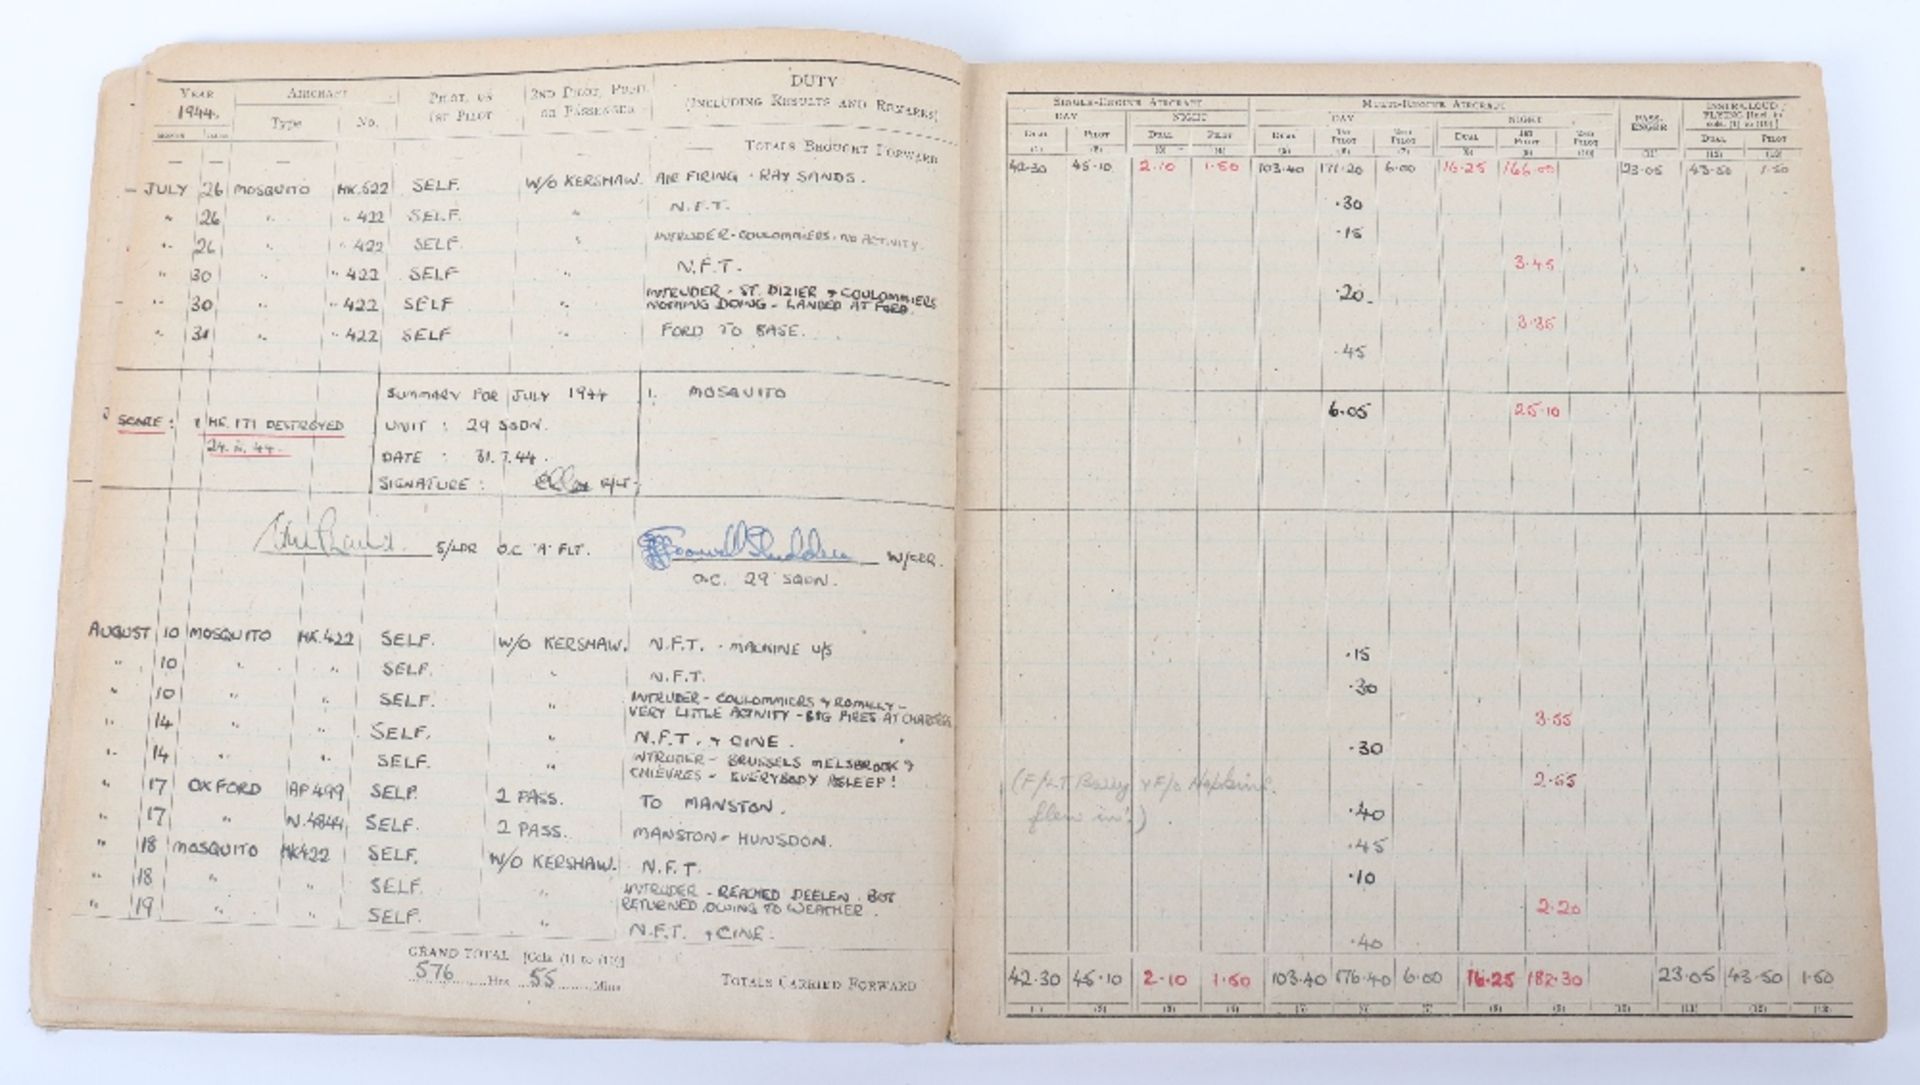 YEAR AIRCRAFT PILOT, OR 1ST PILOT 2ND PILOT, PUPIL OR PASSENGER DUTY (INCLUDING RESULTS AND REMARKS)
1944. Type No.
MONTH DATE
— — — — — — — TOTALS BROUGHT FORWARD
JULY 26 MOSQUITO HK.522 SELF. W/O KERSHAW. AIR FIRING - RAY SANDS.
" 26 " " 422 SELF. " N.F.T.
" 26 " " 422 SELF. " INTRUDER - COULOMMIERS. NO ACTIVITY.
" 30 " " 422 SELF " N.F.T.
" 30 " " 422 SELF " INTRUDER - ST. DIZIER & COULOMMIERS
NOTHING DOING - LANDED AT FORD.
" 31 " " 422 SELF " FORD TO BASE.
SUMMARY FOR JULY 1944 1. MOSQUITO
SCORE: 1 HE. 177 DESTROYED UNIT : 29 SQDN.
24. 2. 44. DATE : 31.7.44.
SIGNATURE : F/LT.
S/LDR O.C. 'A' FLT. W/CDR.
O.C. 29 SQDN.
AUGUST 10 MOSQUITO HK.422 SELF. W/O KERSHAW. N.F.T. - MACHINE U/S
" 10 " " SELF. " N.F.T.
" 10 " " SELF. " INTRUDER - COULOMMIERS & ROMILLY -
VERY LITTLE ACTIVITY - BIG FIRES AT CHARTRES
" 14 " " SELF. " N.F.T. & CINE.
" 14 " " SELF. " INTRUDER - BRUSSELS MELSBROEK &
CHIEVRES - EVERYBODY ASLEEP!
" 17 OXFORD AP499 SELF. 2 PASS. TO MANSTON.
" 17 " N.4844 SELF. 2 PASS. MANSTON - HUNSDON.
" 18 MOSQUITO HK422 SELF. W/O KERSHAW. N.F.T.
" 18 " " SELF. " INTRUDER - REACHED DEELEN. BUT
RETURNED OWING TO WEATHER.
" 19 " " SELF. " N.F.T. & CINE.
GRAND TOTAL [Cols. (1) to (10)]
576 Hrs. 55 Mins. TOTALS CARRIED FORWARD
SINGLE-ENGINE AIRCRAFT MULTI-ENGINE AIRCRAFT PASSENGER INSTR/CLOUD FLYING [Incl. in cols. (1) to (10)]
DAY NIGHT DAY NIGHT
DUAL PILOT DUAL PILOT DUAL 1ST PILOT 2ND PILOT DUAL 1ST PILOT 2ND PILOT DUAL PILOT
(1) (2) (3) (4) (5) (6) (7) (8) (9) (10) (11) (12) (13)
42.30 45.10 2.10 1.50 103.40 171.20 6.00 16.25 166.00 23.05 43.50 1.50
.30
.15
3.45
.20
3.35
.45
6.05 25.10
.15
.30
3.55
.30
(F/LT Barry & F/O Hopkins. 2.55
flew in.) .40
.45
.10
2.20
.40
42.30 45.10 2.10 1.50 103.40 176.40 6.00 16.25 182.30 23.05 43.50 1.50
(1) (2) (3) (4) (5) (6) (7) (8) (9) (10) (11) (12) (13)